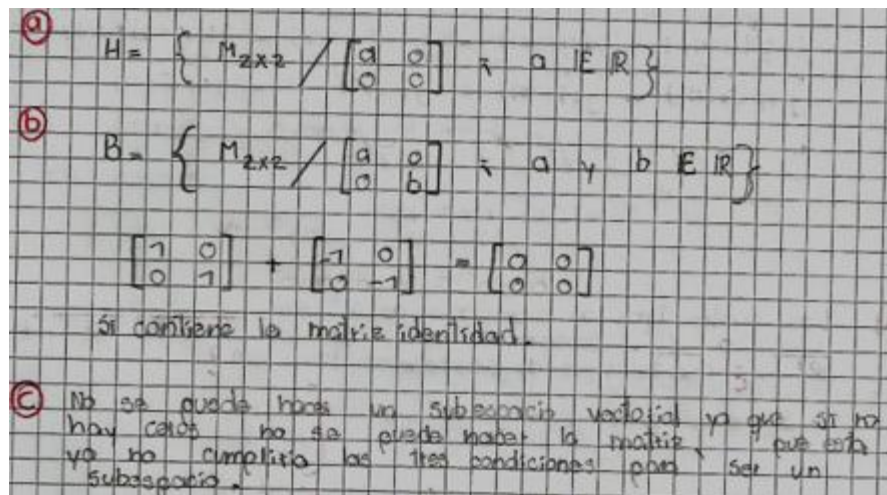 a
H = { M2x2 / [a 0; 0 0] ; a ∈ ℝ }
b
B = { M2x2 / [a 0; 0 b] ; a y b ∈ ℝ }
[1 0; 0 1] + [-1 0; 0 -1] = [0 0; 0 0]
Si contiene la matriz identidad.
c No se puede hacer un subespacio vectorial ya que si no
hay ceros no se puede haber la matriz, que esta
ya no cumpliria las tres condiciones para ser un
subespacio.